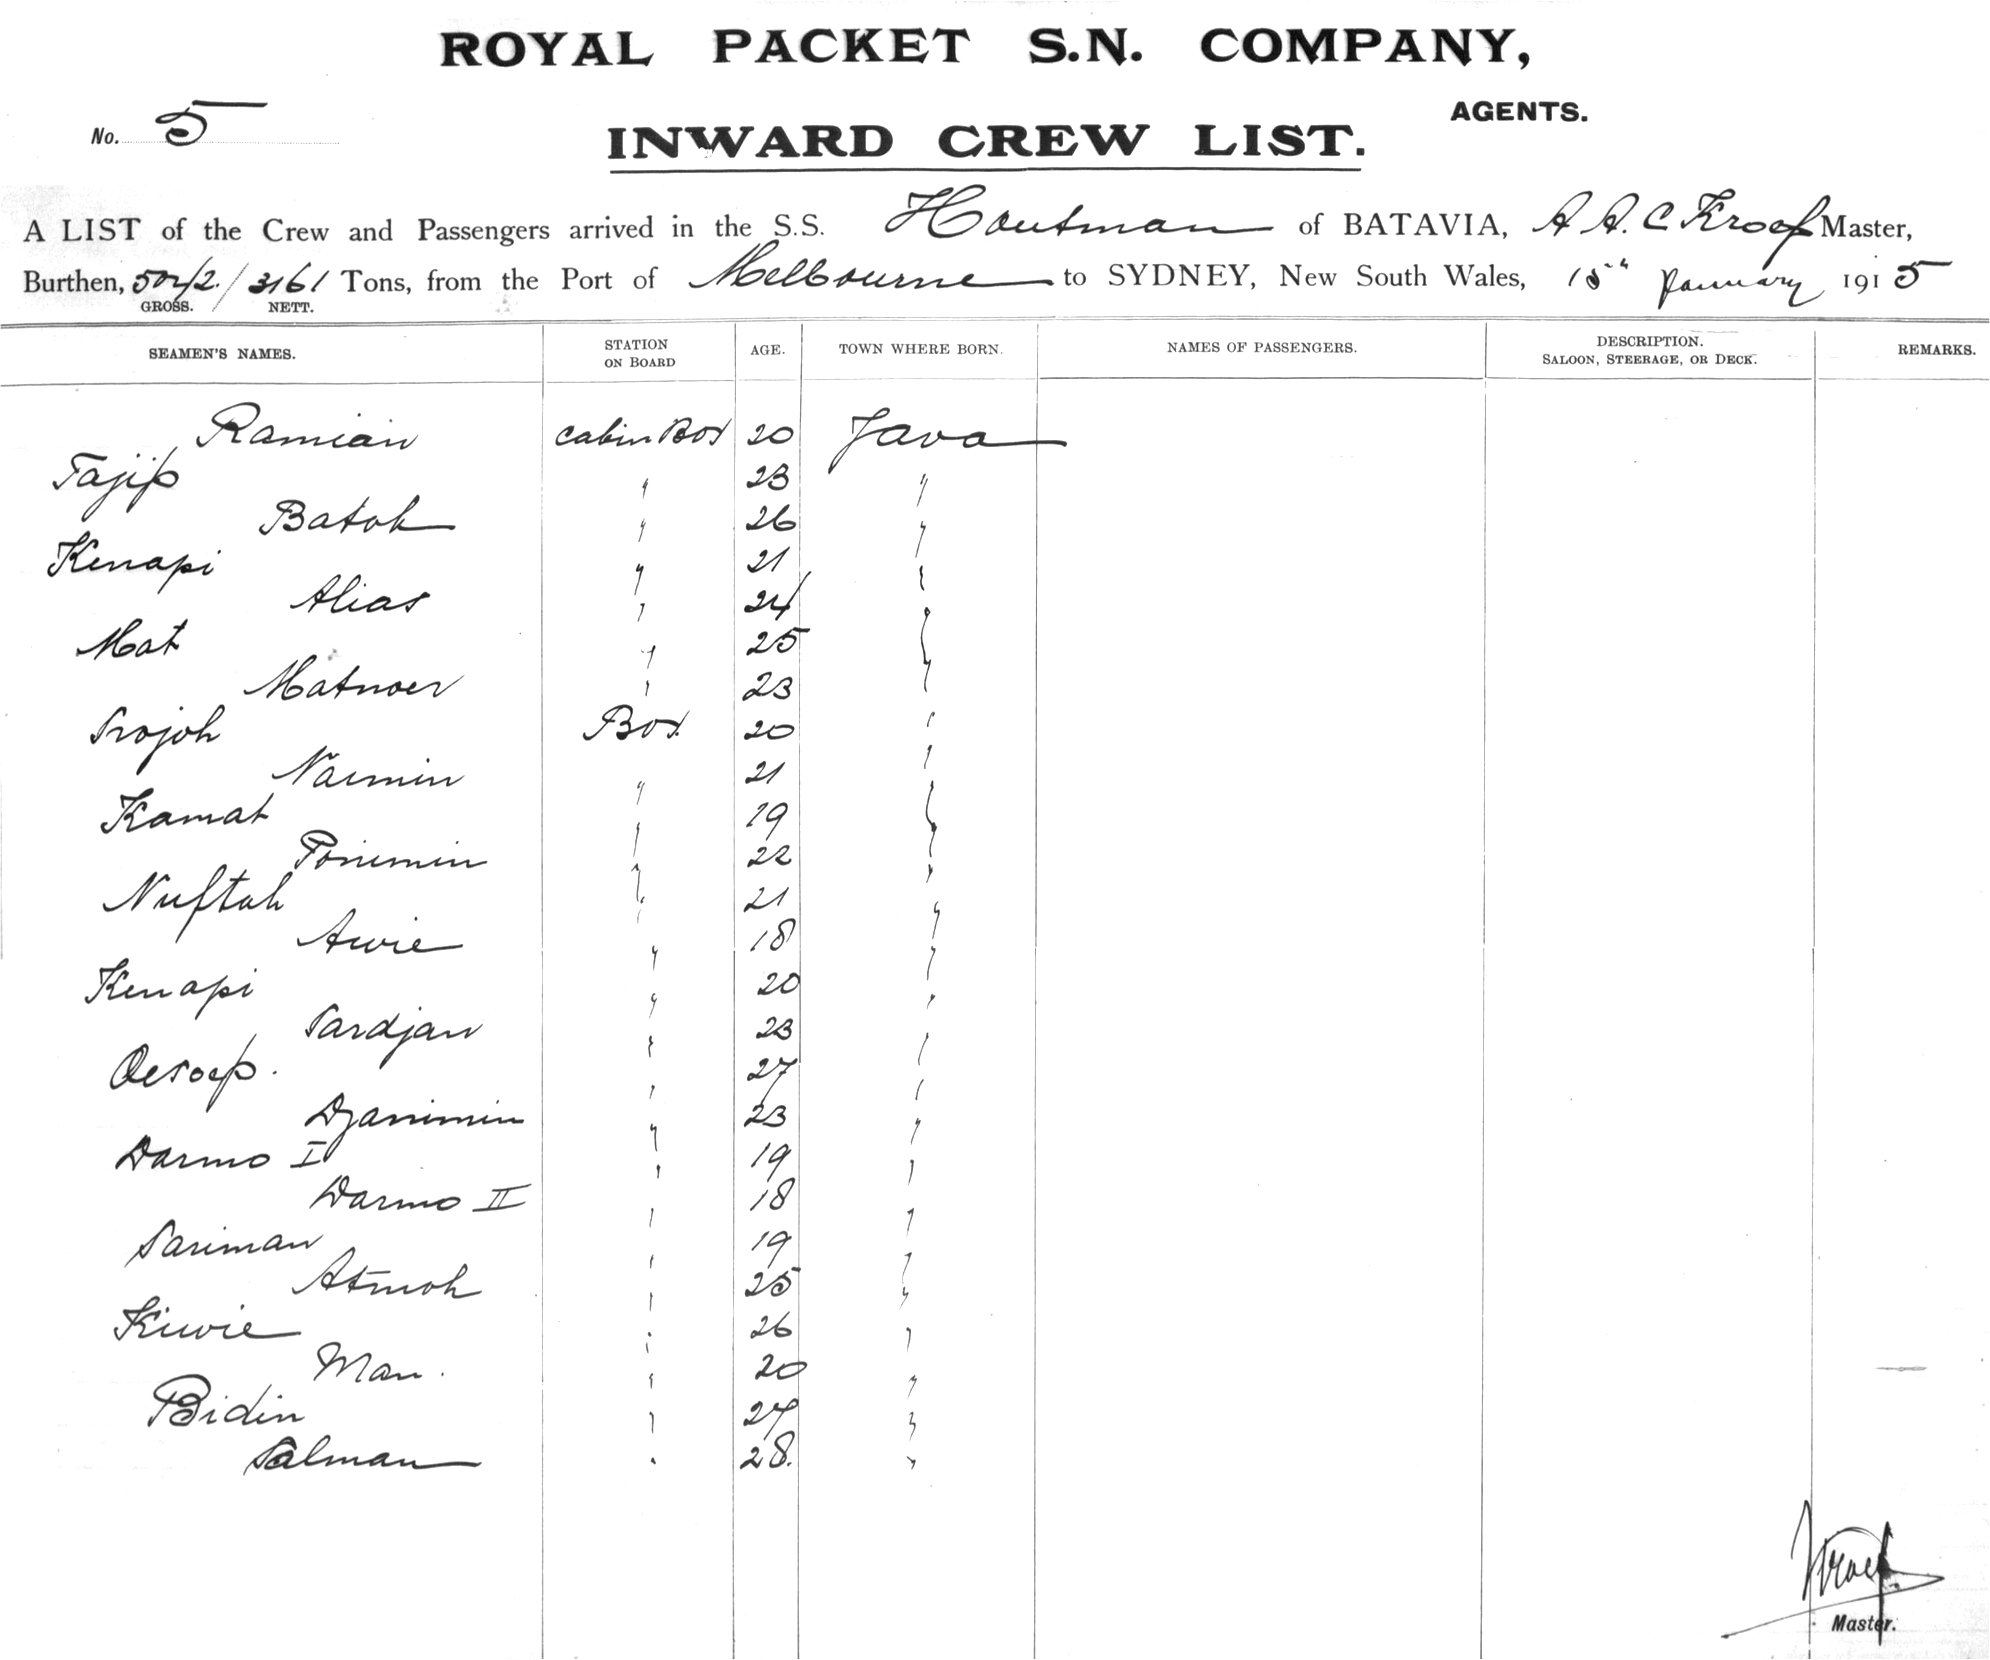 ROYAL PACKET S.N. COMPANY,
AGENTS.
No. 5
INWARD CREW LIST.
A LIST of the Crew and Passengers arrived in the S.S. Houtman of BATAVIA, A A. C Kroef Master,
Burthen, 5042./3161 Tons, from the Port of Melbourne to SYDNEY, New South Wales, 15" January 1915
GROSS. NETT.
SEAMEN'S NAMES. STATION ON BOARD AGE. TOWN WHERE BORN. NAMES OF PASSENGERS. DESCRIPTION. SALOON, STEERAGE, OR DECK. REMARKS.
Ramian cabin Boy 20 Java
Tajip " 23 "
Batok " 26 "
Kenapi " 21 "
Alias " 24 "
Mat " 25 "
Matnoer " 23 "
Srojoh Boy 20 "
Naimin " 21 "
Kamat " 19 "
Ponimin " 22 "
Nuftah " 21 "
Awie " 18 "
Kenapi " 20 "
Sardjan " 23 "
Oesoep. " 27 "
Djanimin " 23 "
Darmo I " 19 "
Darmo II " 18 "
Sariman " 19 "
Atmoh " 25 "
Kiwie " 26 "
Man. " 20 "
Bidin " 27 "
Salman " 28. "
Kroef
Master.